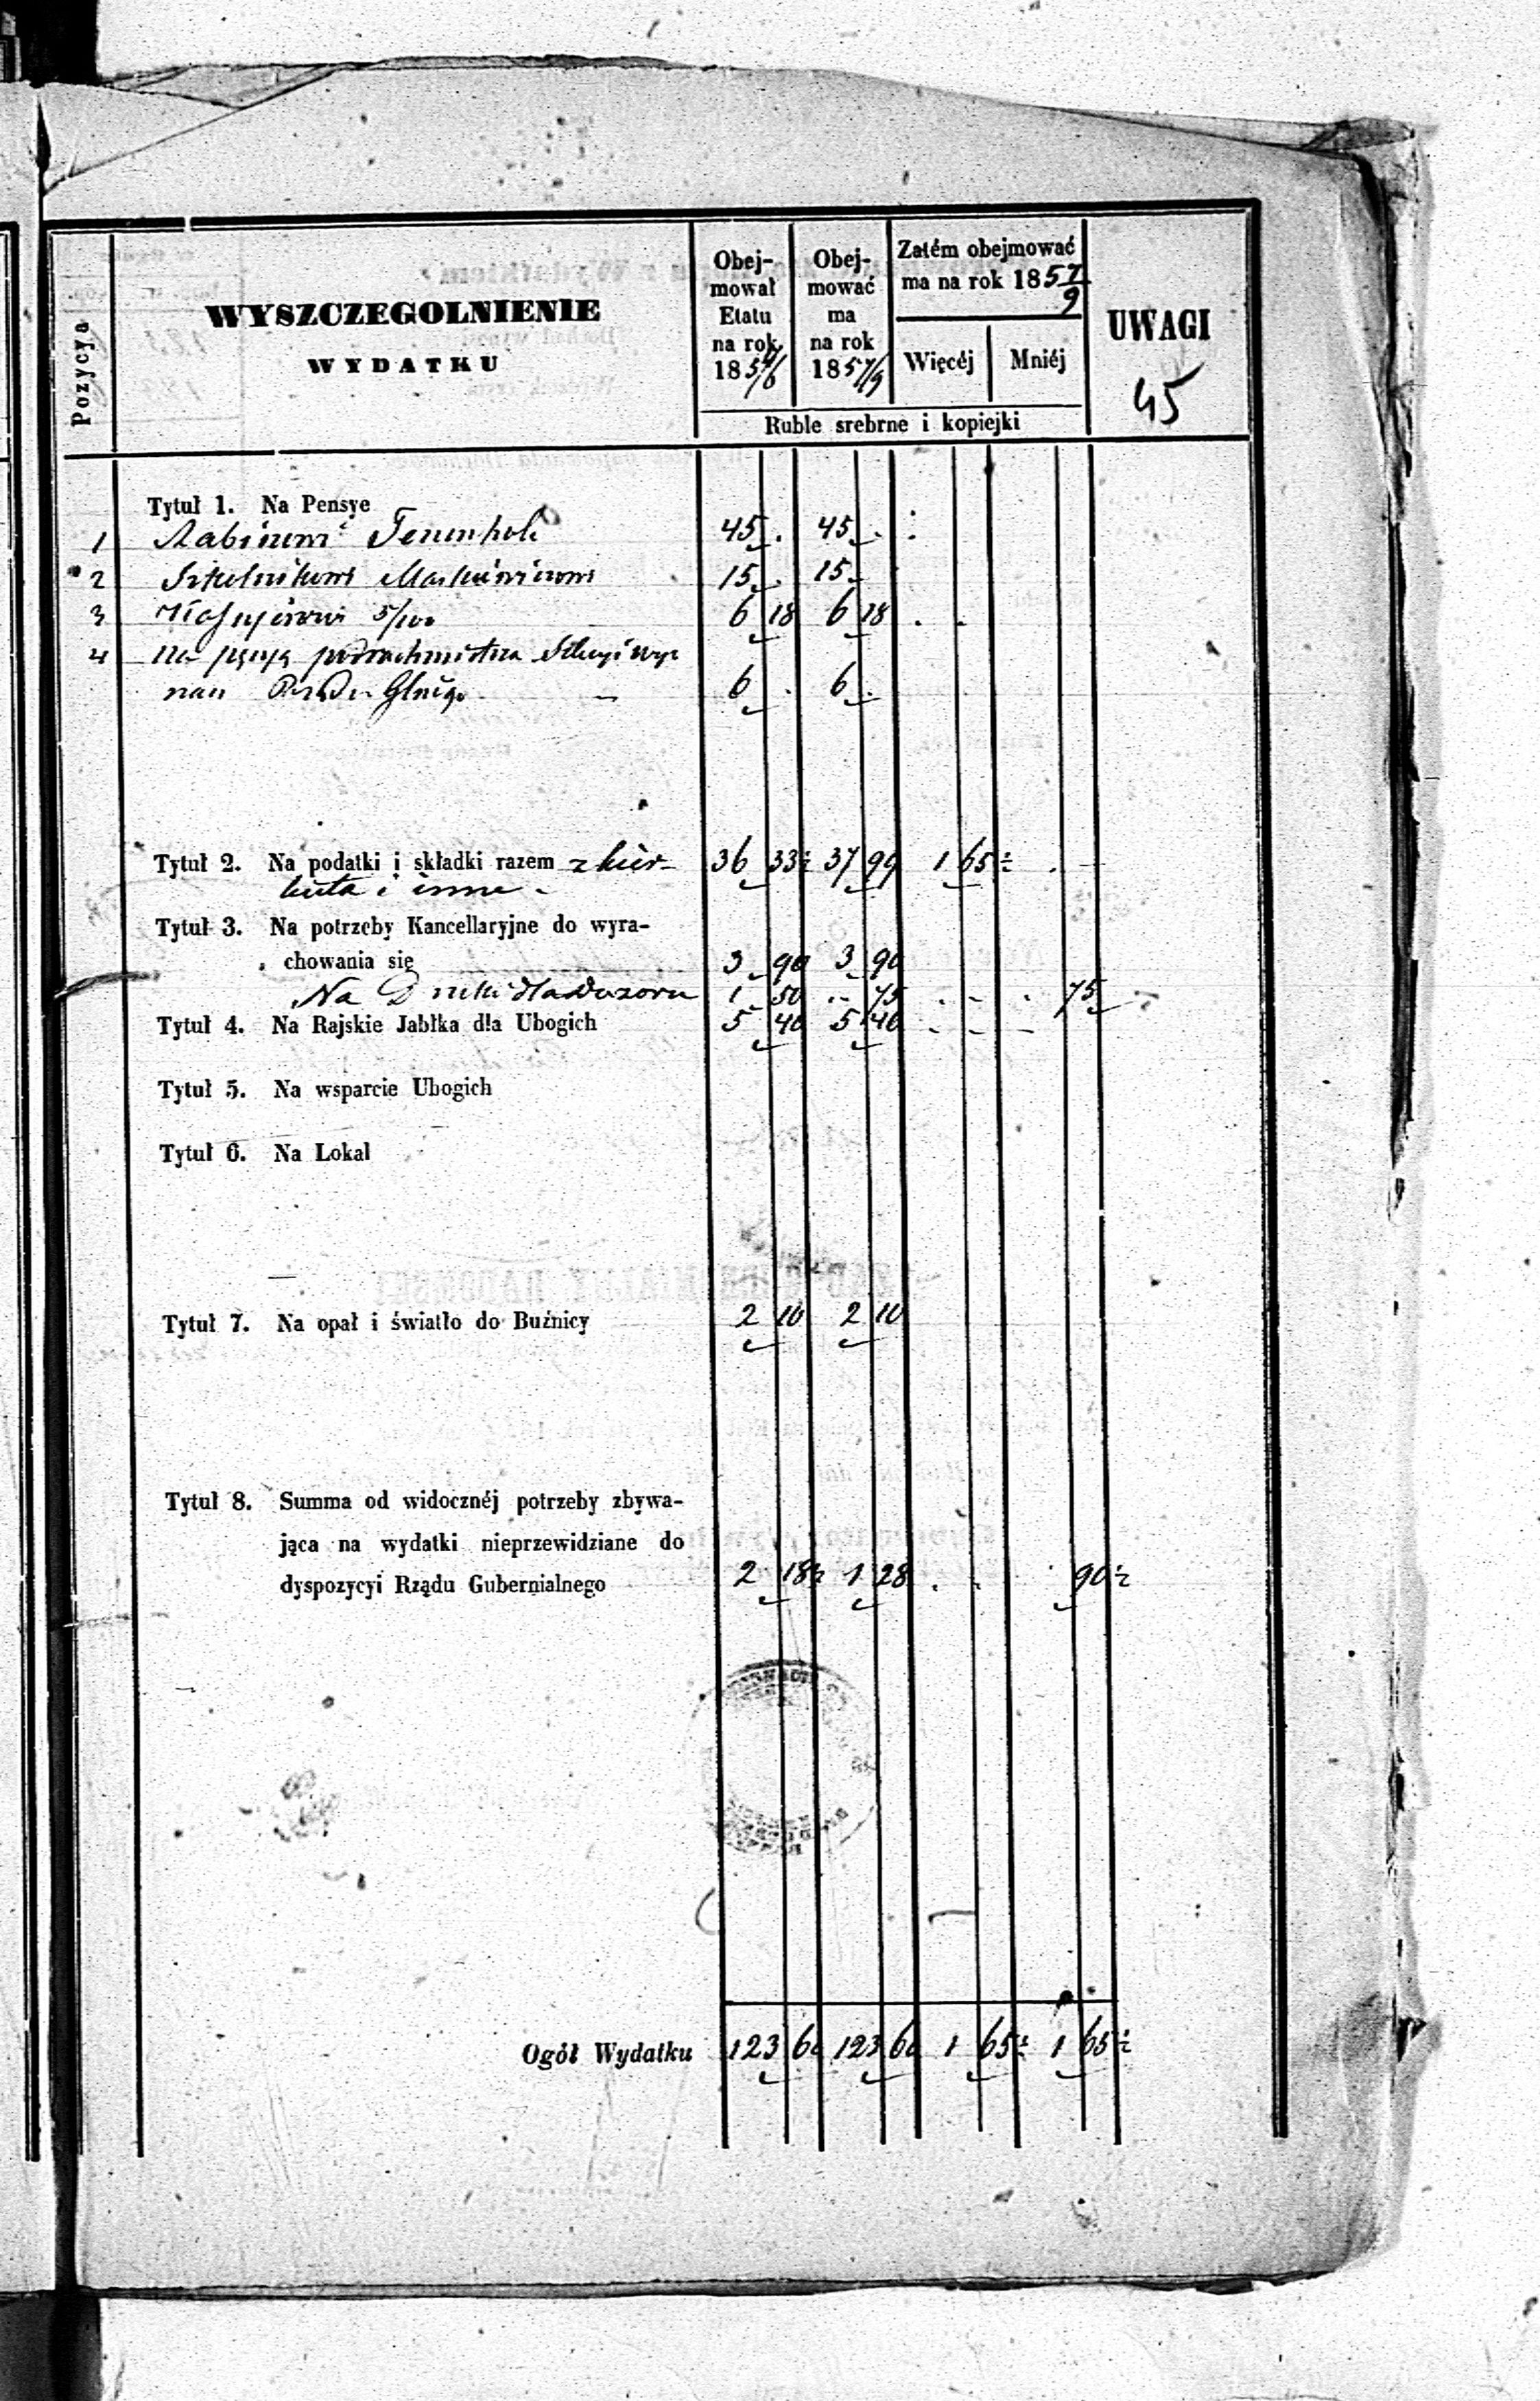 Pozycya
WYSZCZEGOLNIENIE
WYDATKU
Obej-
mował
Etatu
na rok
1854/6
Obej-
mować
ma
na rok
1857/9
Zatém obejmować
ma na rok 1857/9
Więcéj
Mniéj
UWAGI
45
Ruble srebrne i kopiejki
Tytuł 1. Na Pensye
1 Rabinowi 45 . 45 .
2 Szkolnikowi 15 . 15
3 Kassyerowi 5/100 6 18 6 18 . .
4 na
6 . 6 .
Tytuł 2. Na podatki i składki razem z kwar- 36 33½ 37 99 1 65½ .
i inne
Tytuł 3. Na potrzeby Kancellaryjne do wyra-
chowania się 3 90 3 90
Na Druki dla Dozoru 1 50 .. 75 . - . 75
Tytuł 4. Na Rajskie Jabłka dla Ubogich 5 40 5 40 - - -
Tytuł 5. Na wsparcie Ubogich
Tytuł 6. Na Lokal
Tytuł 7. Na opał i światło do Buźnicy 2 10 2 10
Tytuł 8. Summa od widocznéj potrzeby zbywa-
jąca na wydatki nieprzewidziane do
dyspozycyi Rządu Gubernialnego 2 18½ 1 28 . . . 90½
Ogół Wydatku 123 60 123 60 1 65½ 1 65½